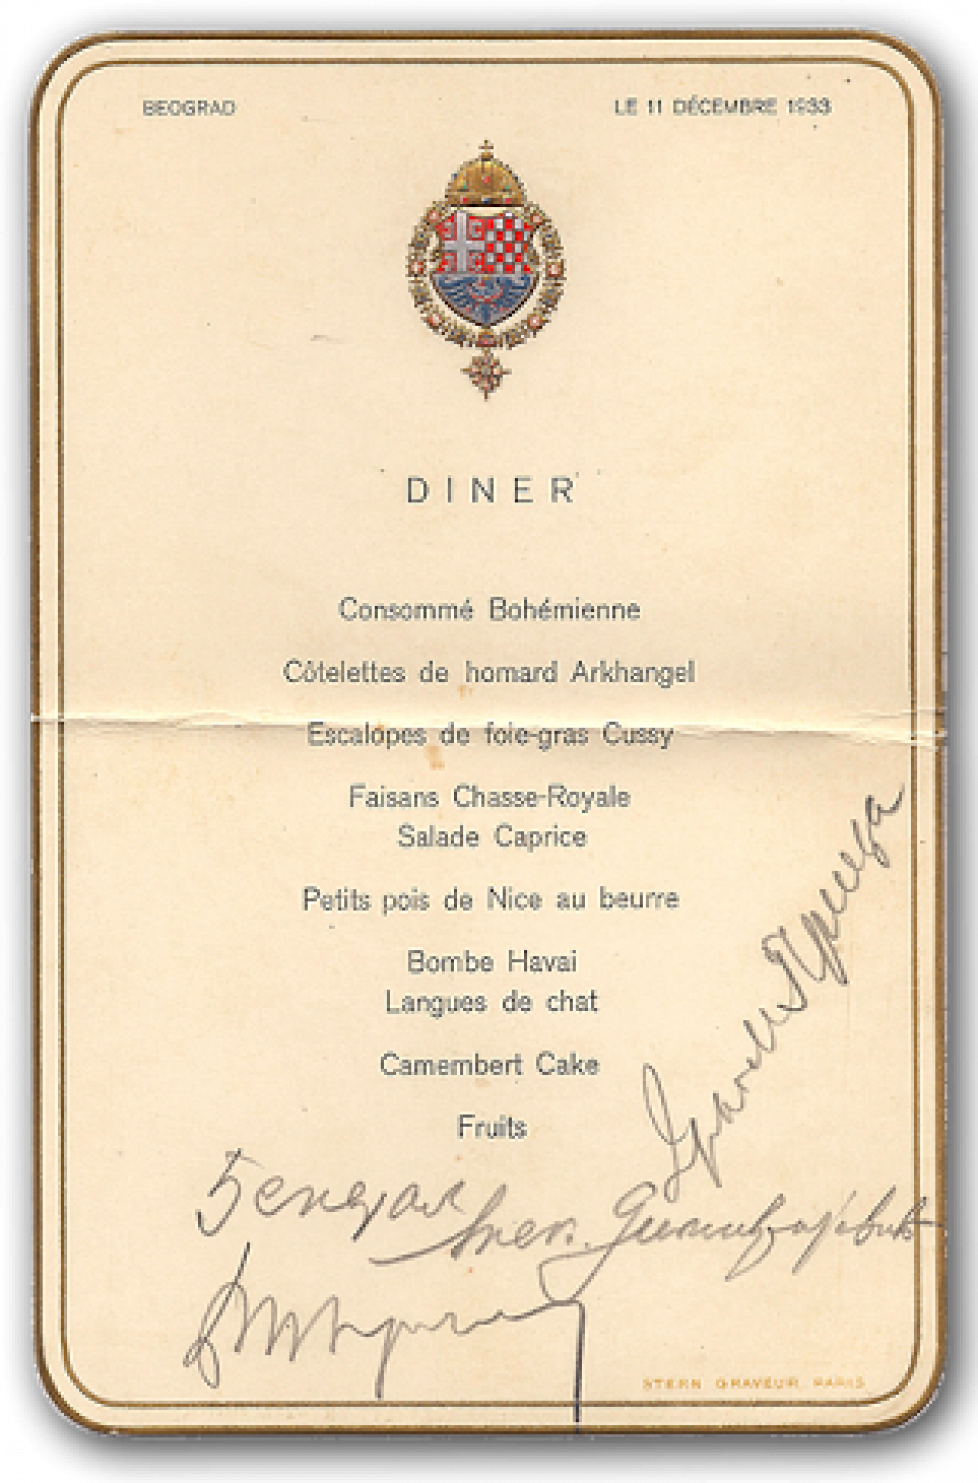 BEOGRAD
LE 11 DÉCEMBRE 1933
DINER
Consommé Bohémienne
Côtelettes de homard Arkhangel
Escalopes de foie-gras Cussy
Faisans Chasse-Royale
Salade Caprice
Petits pois de Nice au beurre
Bombe Havai
Langues de chat
Camembert Cake
Fruits
STERN GRAVEUR PARIS